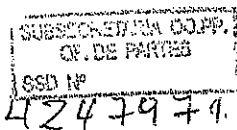 SUBSECRETARIA OO.PP.
OF. DE PARTES
SSD Nº
4247971.